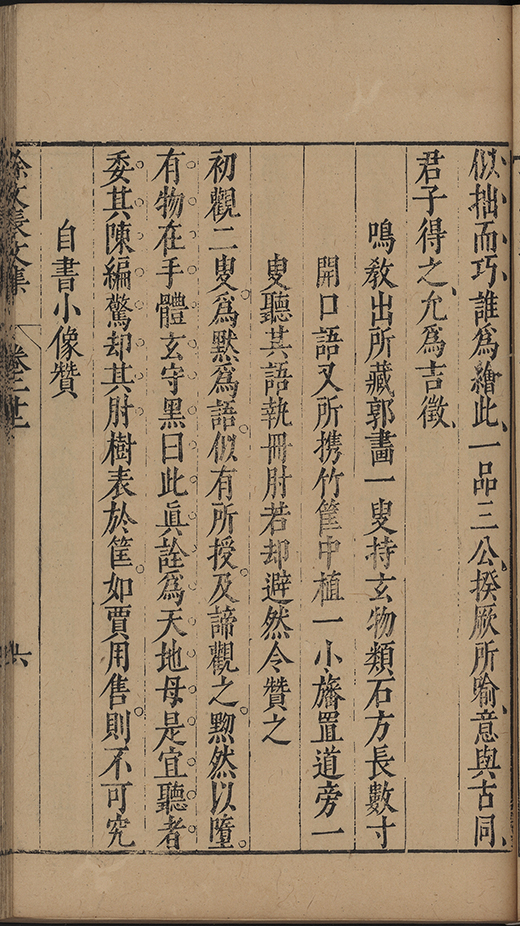 似拙而巧誰為繪此一品三公揆厥所喻意與古同
君子得之允為吉徵
鳴教出所藏郭畫一叟持玄物類石方長數寸
開口語又所携竹筐中植一小旛置道旁一
叟聽其語執冊肘若却避然令贊之
初觀二叟為默為語似有所授及諦觀之黙然以墮
有物在手體玄守黑曰此眞詮為天地母是宜聽者
委其陳編驚却其肘樹表於筐如賈用售則不可究
自書小像贊
徐文長文集 卷之廿二 六